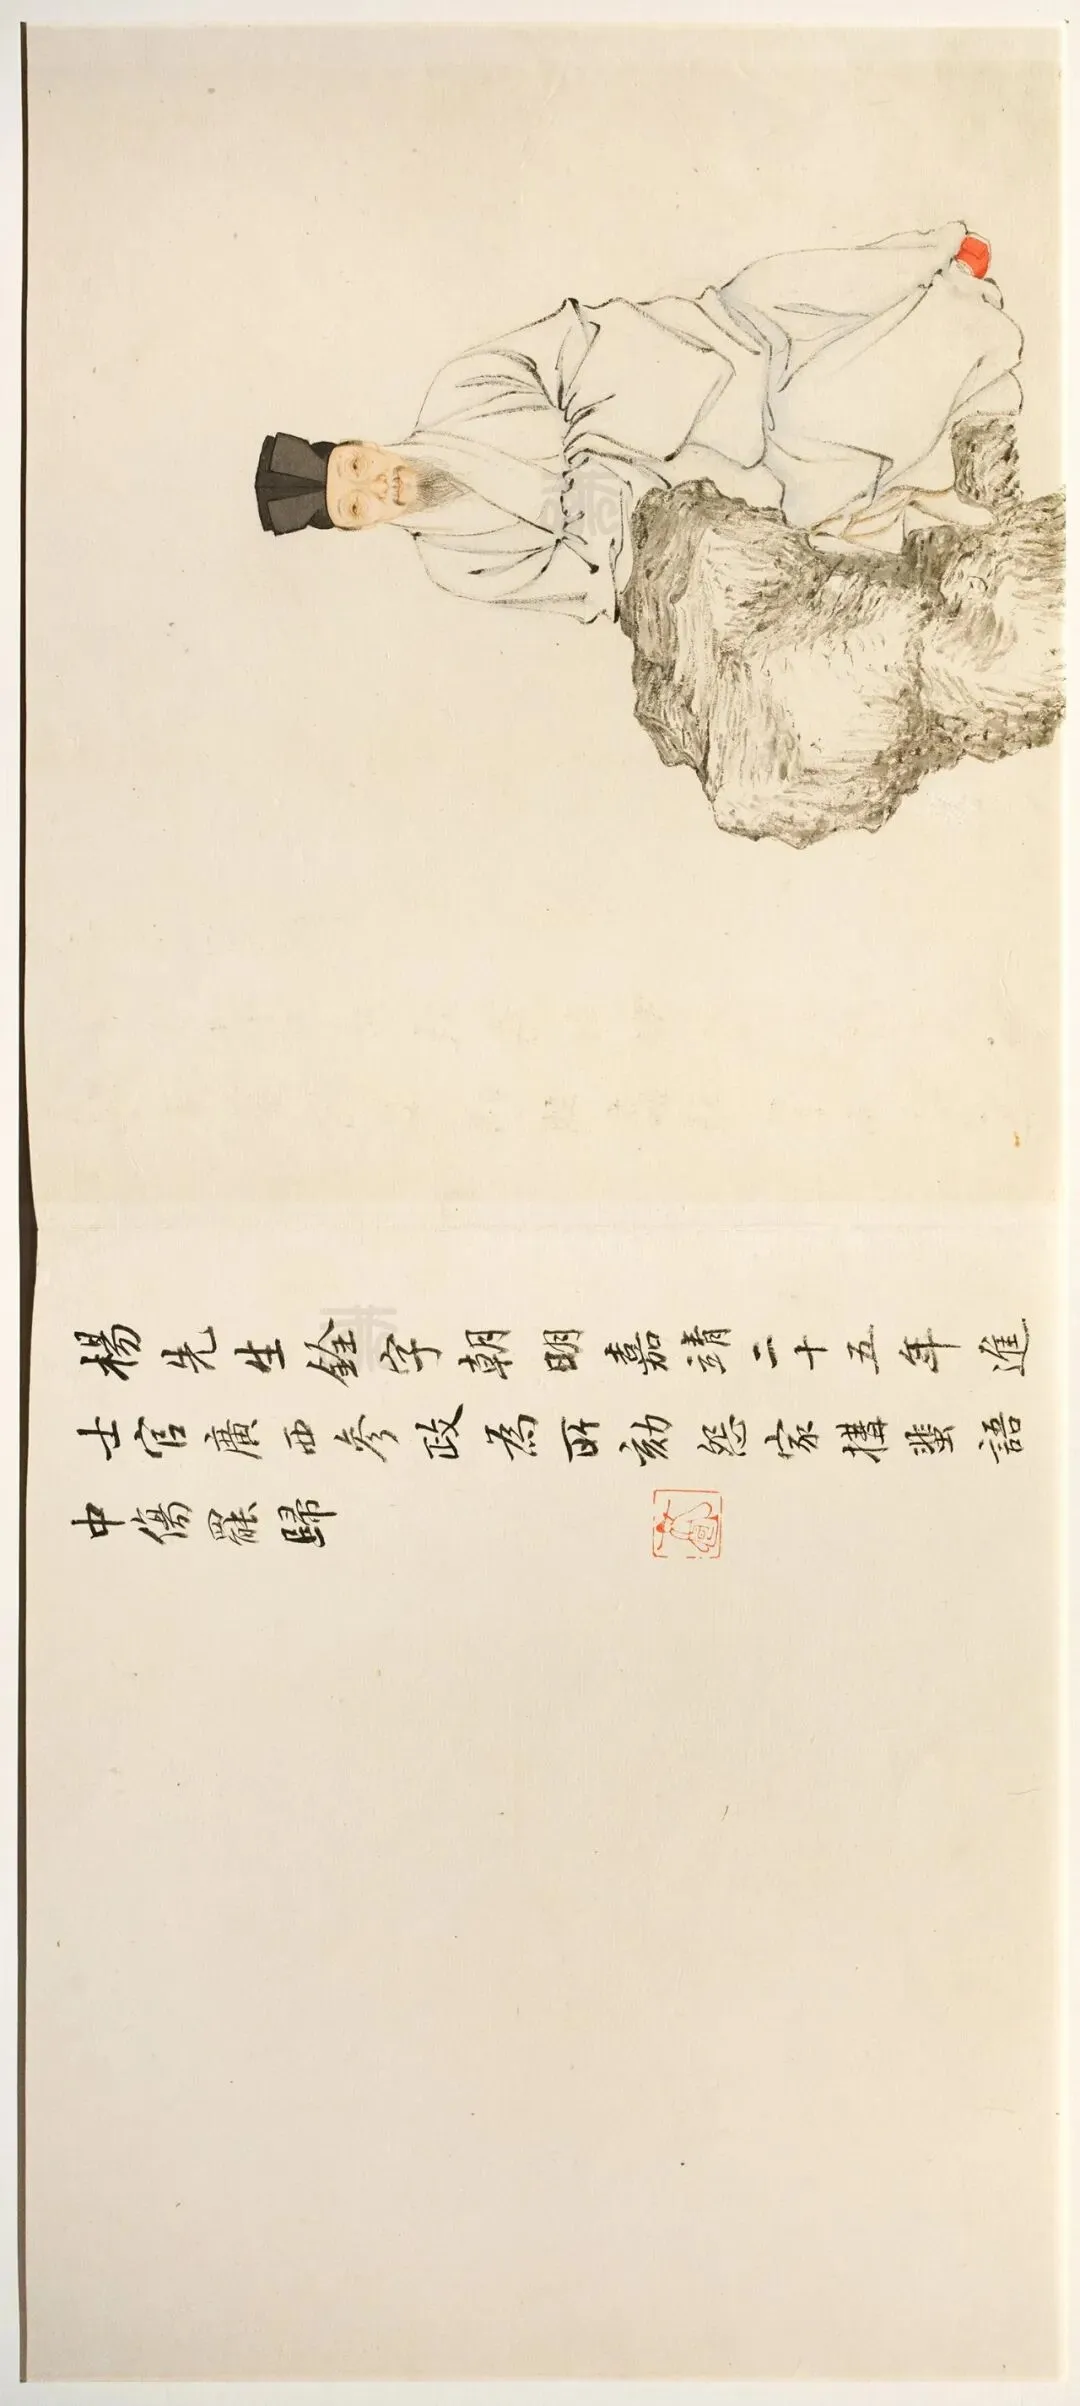 楊先生銓字朝明嘉靖二十五年進
士官廣西參政為所劾怨家構蜚語
中傷罷歸